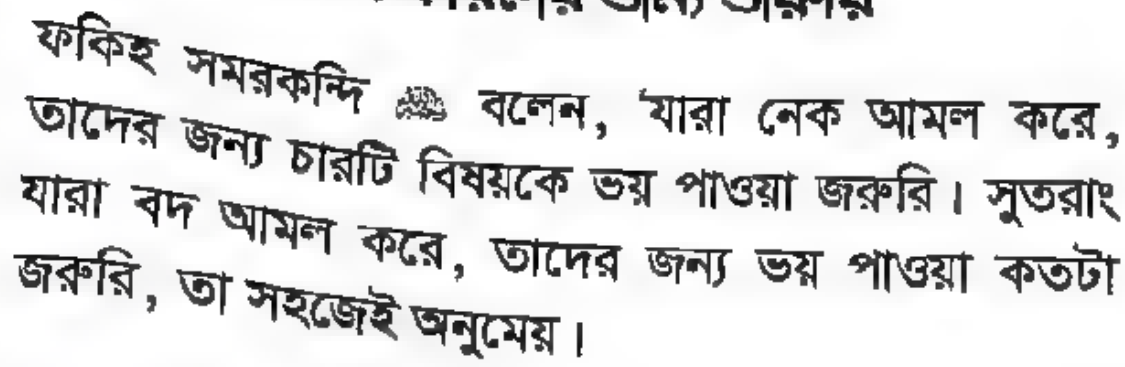 ফকিহ সমরকন্দি বলেন, 'যারা নেক আমল করে,
তাদের জন্য চারটি বিষয়কে ভয় পাওয়া জরুরি। সুতরাং
যারা বদ আমল করে, তাদের জন্য ভয় পাওয়া কতটা
জরুরি, তা সহজেই অনুমেয়।